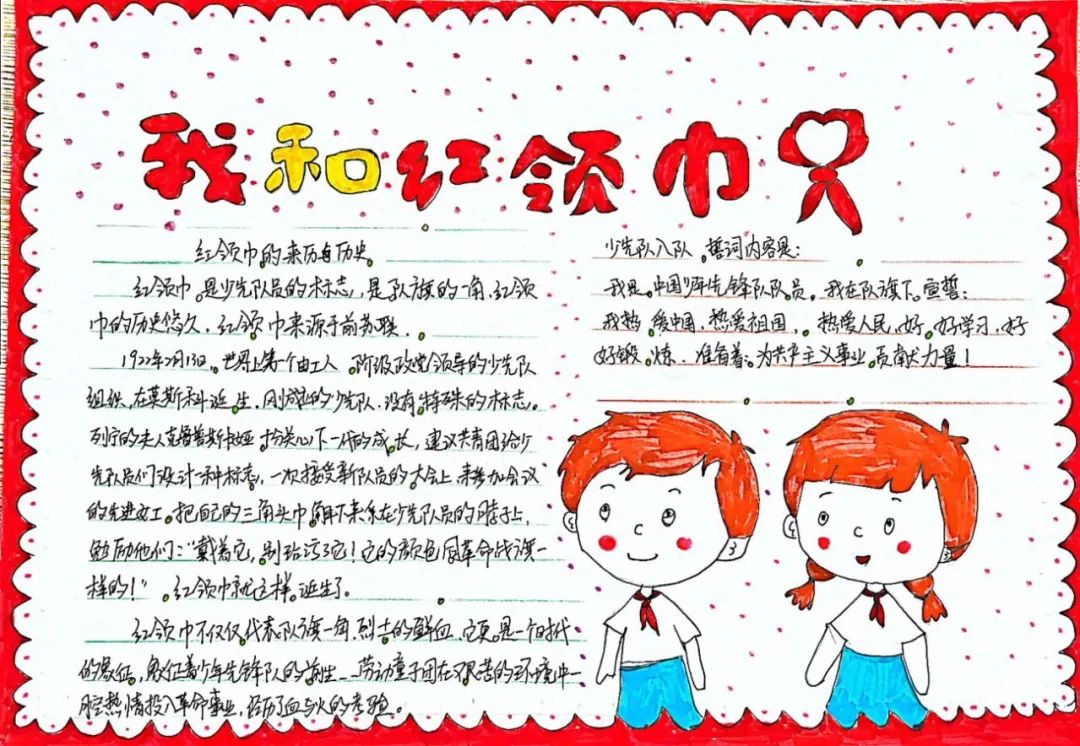 我和红领巾
红领巾的来历与历史
红领巾,是少先队员的标志,是队旗的一角,红领
巾的历史悠久,红领巾来源于前苏联.
1922年2月13日,世界上第一个由工人阶级政党领导的少先队
组织,在莫斯科诞生,刚成立的少先队,没有特殊的标志。
列宁的夫人克鲁普斯卡娅 关心下一代的成长,建议共青团给少
先队员们设计一种标志,一次接受新队员的大会上,来参加会议
的先进女工,把自己的三角头巾解下来系在少先队员的脖子上,
勉励他们:“戴着它,别玷污了它!它的颜色同革命战旗一
样的!”红领巾就这样诞生了。
红领巾不仅仅代表队旗一角,烈士的鲜血,它更是一个时代
的象征,象征着少年先锋队的前生——劳动童子团在艰苦的环境中一
腔热情投入革命事业,经历了血与火的考验。
少先队入队,誓词内容是:
我是中国少年先锋队队员。我在队旗下宣誓:
我热爱中国,热爱祖国,热爱人民,好好学习,好
好锻炼,准备着:为共产主义事业,贡献力量!